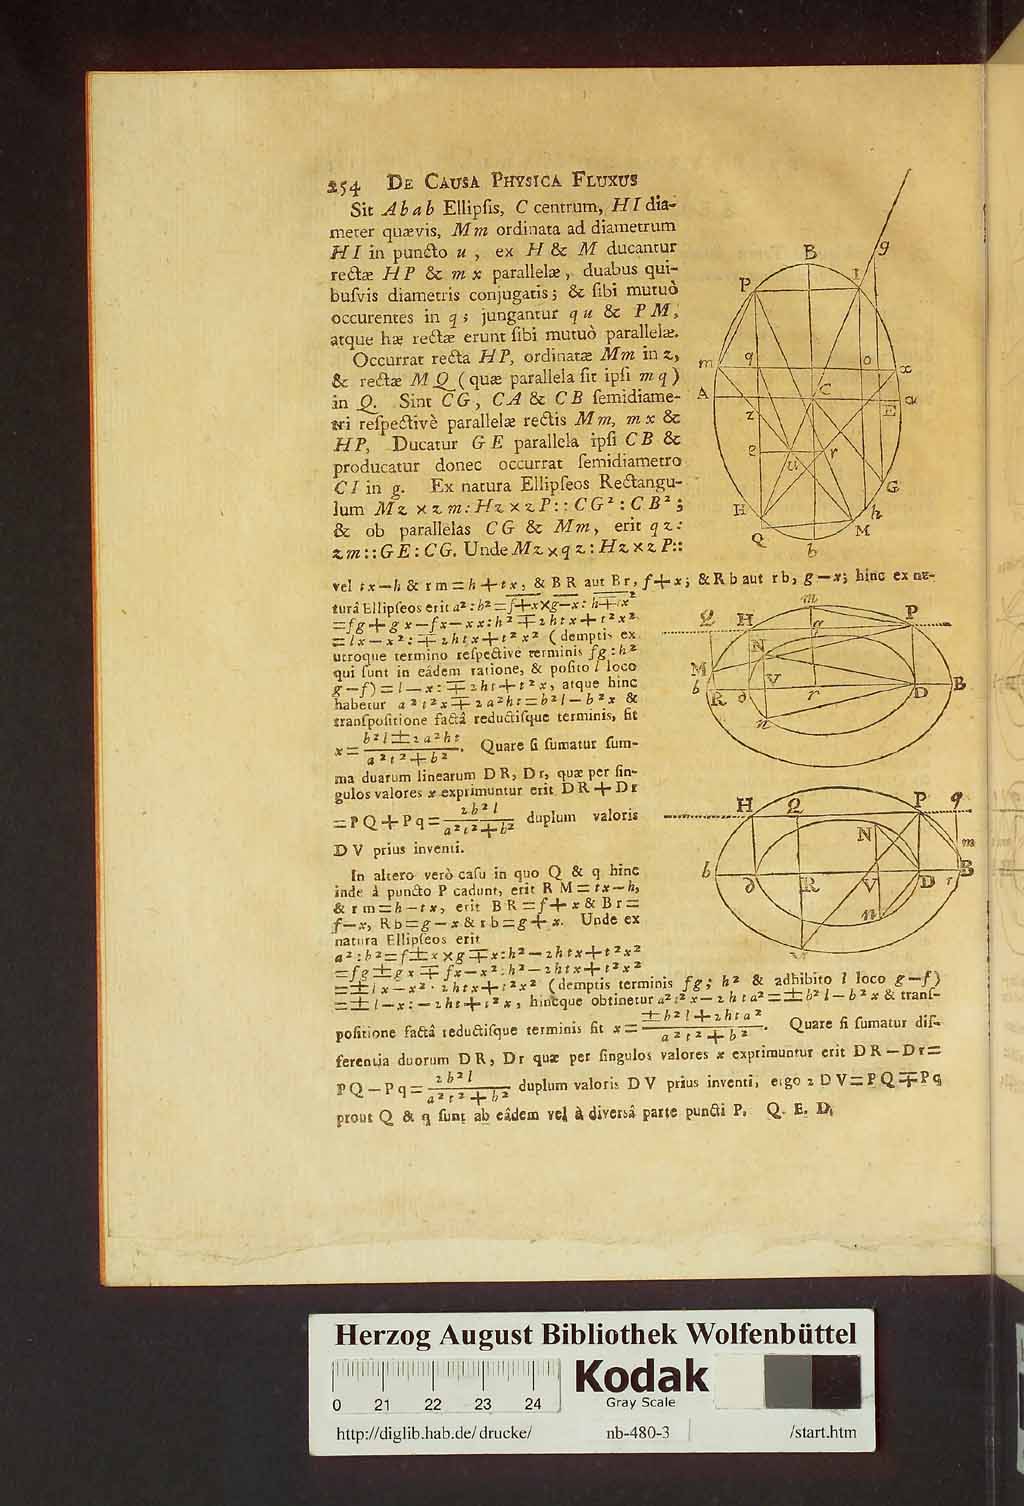 254 DE CAUSA PHYSICA FLUXUS
Sit Abab Ellipſis, C centrum, HI dia-
meter quævis, Mm ordinata ad diametrum
HI in puncto u, ex H & M ducantur
rectæ HP & mx parallelæ, duabus qui-
buſvis diametris conjugatis; & ſibi mutuò
occurentes in q; jungantur qu & PM,
atque hæ rectæ erunt ſibi mutuò parallelæ.
Occurrat recta HP, ordinatæ Mm in z,
& rectæ MQ (quæ parallela ſit ipſi mq)
in Q. Sint CG, CA & CB ſemidiame-
tri reſpectivè parallelæ rectis Mm, mx &
HP, Ducatur GE parallela ipſi CB &
producatur donec occurrat ſemidiametro
CI in g. Ex natura Ellipſeos Rectangu-
lum Mz × zm : Hz × zP :: CG² : CB²;
& ob parallelas CG & Mm, erit qz :
zm :: GE : CG. Unde Mz × qz : Hz × zP ::
vel tx—h & rm=h+tx, & BR aut Br, f+x; & Rb aut rb, g—x; hinc ex na-
turâ Ellipſeos erit a² : b² = f∓x × g—x : h∓tx²
=fg+gx—fx—xx : h² ∓ 2htx+t²x²
=lx—x² : ∓ 2htx+t²x² (demptis ex
utroque termino reſpective terminis fg : h²
qui ſunt in eâdem ratione, & poſito l loco
g—f)=l—x : ∓ 2ht+t²x, atque hinc
habetur a²t²x ∓ 2a²ht=b²l—b²x &
tranſpoſitione factâ reductiſque terminis, fit
x = b²l ± 2a²ht / a²t²+b². Quare ſi ſumatur ſum-
ma duarum linearum DR, Dr, quæ per ſin-
gulos valores x exprimuntur erit DR+Dr
=PQ+Pq= 2b²l / a²t²+b² duplum valoris
DV prius inventi.
In altero verò caſu in quo Q & q hinc
inde à puncto P cadunt, erit RM=tx—h,
& rm=h—tx, erit BR=f+x & Br=
f—x, Rb=g—x & rb=g+x. Unde ex
natura Ellipſeos erit
a² : b²=f±x × g∓x : h²—2htx+t²x²
=fg±gx∓fx—x² : h²—2htx+t²x²
=±lx—x² : 2htx+t²x² (demptis terminis fg; h² & adhibito l loco g—f)
=±l—x : —2ht+t²x, hincque obtinetur a²t²x—2hta²=±b²l—b²x & tranſ-
poſitione factâ reductiſque terminis fit x= ±b²l+2hta² / a²t²+b². Quare ſi ſumatur dif-
ferentia duorum DR, Dr quæ per ſingulos valores x exprimuntur erit DR—Dr=
PQ—Pq= 2b²l / a²t²+b² duplum valoris DV prius inventi, ergo 2DV=PQ∓Pq
prout Q & q ſunt ab eâdem vel à diversâ parte puncti P. Q. E. D.
B
g
P
I
m
q
o
x
A
C
E
a
z
e
u
r
G
H
h
Q
M
b
m
Q
H
q
P
N
M
b
R
d
V
r
D
B
n
H
Q
P
q
N
m
b
d
R
V
D
r
B
n
M
Herzog August Bibliothek Wolfenbüttel
Kodak
Gray Scale
0 21 22 23 24
http://diglib.hab.de/drucke/ nb-480-3 /start.htm